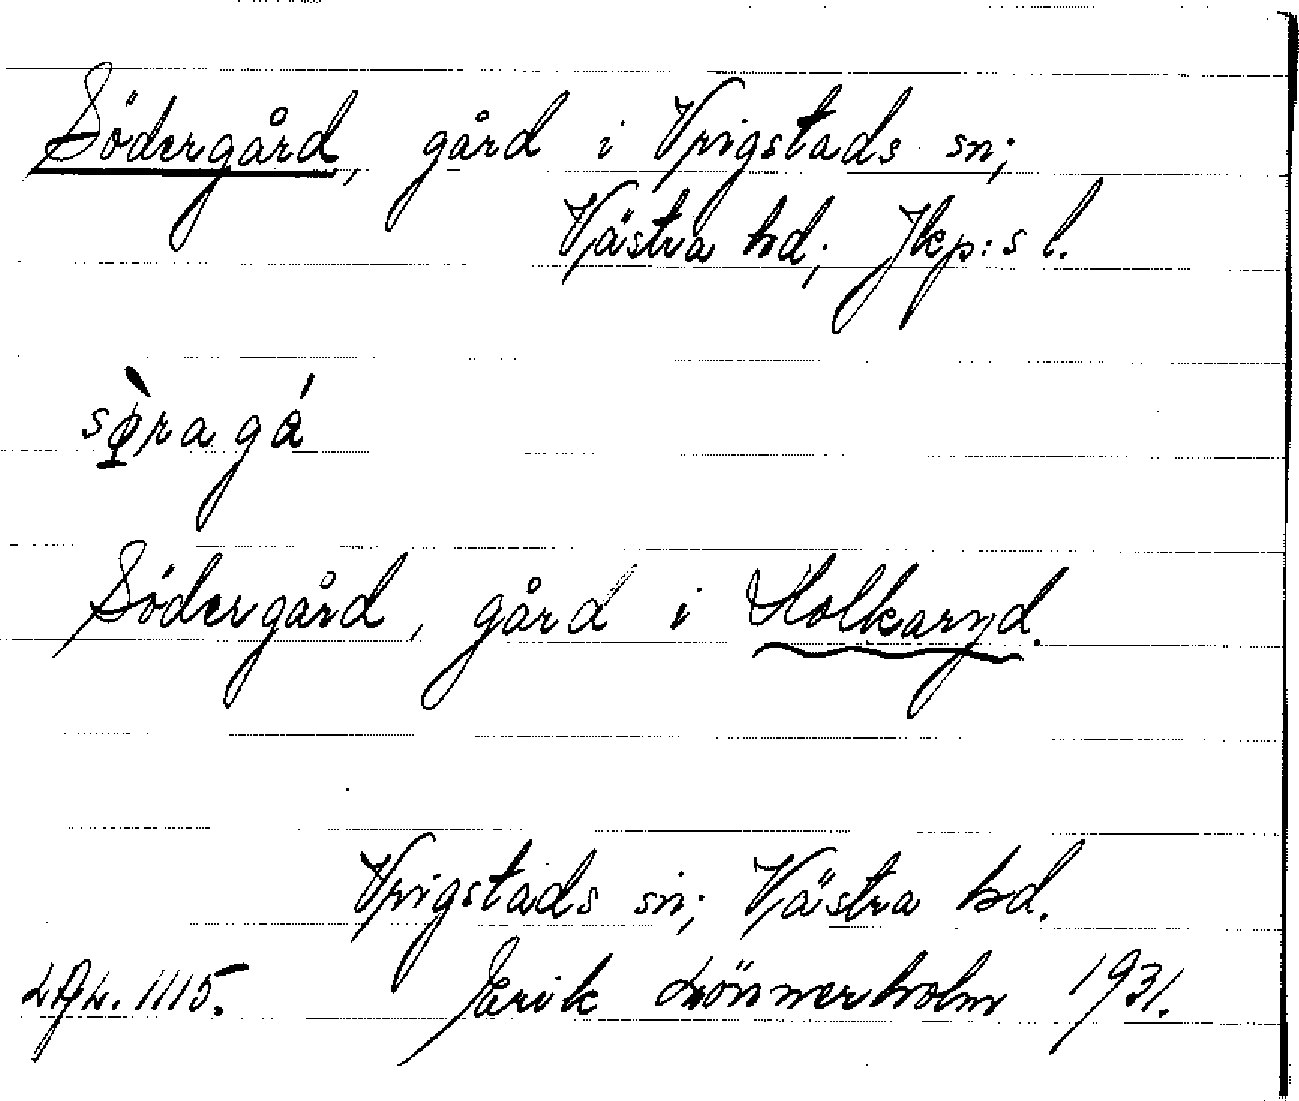 Södergård, gård i Vrigstads sn;
Västra hd; Jkp:s l.
sø̀ragá
Södergård, gård i Holkaryd.
Vrigstads sn; Västra hd.
LAL. 1115. Erik Lönnerholm 1931.